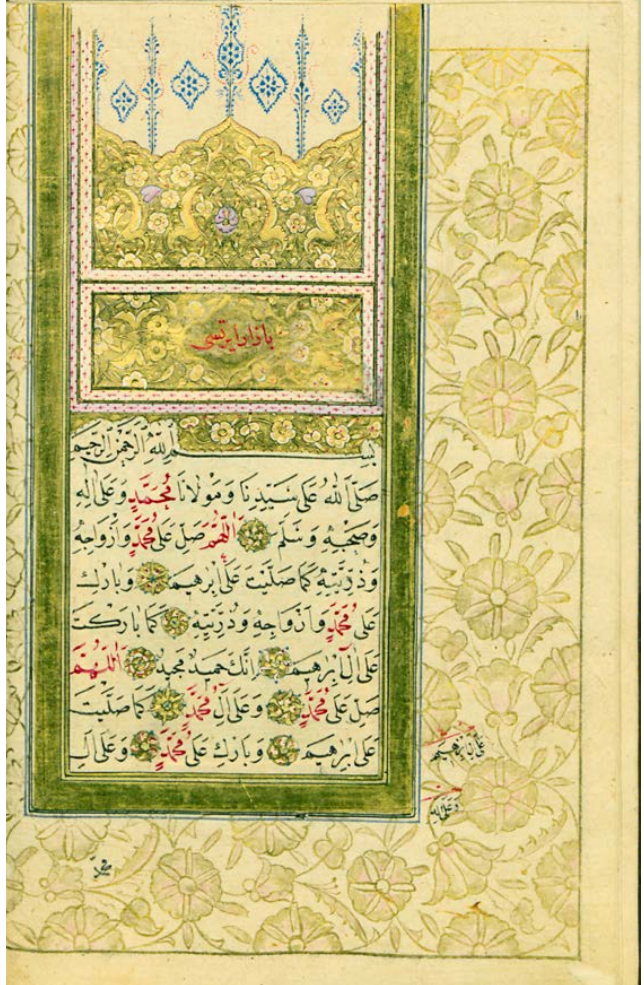 بازار ایرتسی
بسم الله الرحمن الرحيم
صَلَّى اللهُ عَلَى سَيِّدِنَا وَمَوْلَانَا مُحَمَّدٍ وَعَلَى اٰلِهِ
وَصَحْبِهِ وَسَلَّمَ اَللّٰهُمَّ صَلِّ عَلَى مُحَمَّدٍ وَاَزْوَاجِهِ
وَذُرِّيَّتِهِ كَمَا صَلَّيْتَ عَلَى اِبْرٰهِيمَ وَبَارِكْ
عَلَى مُحَمَّدٍ وَاَزْوَاجِهِ وَذُرِّيَّتِهِ كَمَا بَارَكْتَ
عَلَى اٰلِ اِبْرٰهِيمَ اِنَّكَ حَمِيدٌ مَجِيدٌ اَللّٰهُمَّ
صَلِّ عَلَى مُحَمَّدٍ وَعَلَى اٰلِ مُحَمَّدٍ كَمَا صَلَّيْتَ
عَلَى اِبْرٰهِيمَ وَبَارِكْ عَلَى مُحَمَّدٍ وَعَلَى اٰلِ
عَلَى اِبْرٰهِيمَ
وَعَلَى اٰلِهِ
مُحَمَّدٍ